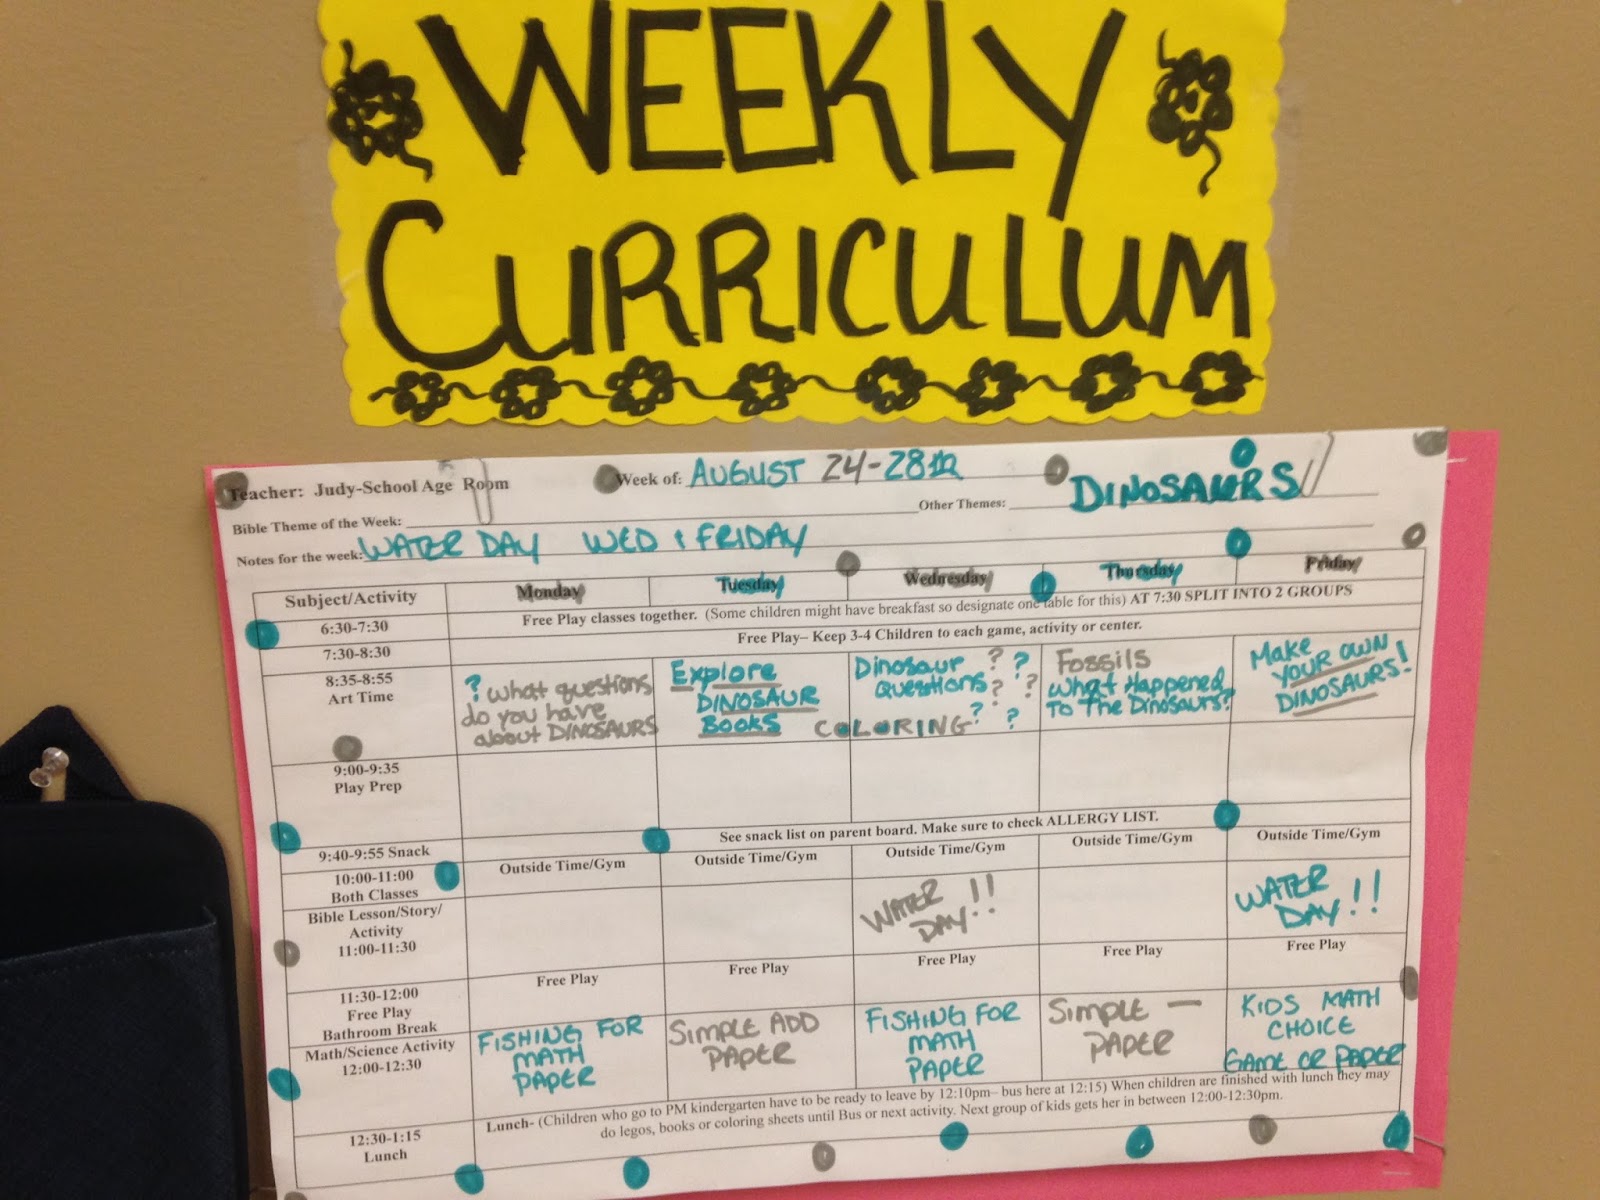 WEEKLY
CURRICULUM
Teacher: Judy-School Age Room
Week of: AUGUST 24-28th
Bible Theme of the Week:
Other Themes: DINOSAURS
Notes for the week: WATER DAY WED & FRIDAY
Subject/Activity Monday Tuesday Wednesday Thursday Friday
6:30-7:30
Free Play classes together. (Some children might have breakfast so designate one table for this) AT 7:30 SPLIT INTO 2 GROUPS
7:30-8:30
Free Play– Keep 3-4 Children to each game, activity or center.
8:35-8:55
Art Time
? What questions
do you have
about DINOSAURS
Explore
DINOSAUR
BOOKS
Dinosaur ? ?
questions ? ?
COLORING ? ?
Fossils
What Happened
To The Dinosaurs?
Make
YOUR OWN
DINOSAURS!
9:00-9:35
Play Prep
9:40-9:55 Snack
See snack list on parent board. Make sure to check ALLERGY LIST.
10:00-11:00
Both Classes
Outside Time/Gym Outside Time/Gym Outside Time/Gym Outside Time/Gym Outside Time/Gym
Bible Lesson/Story/
Activity
11:00-11:30
WATER
DAY!!
WATER
DAY!!
11:30-12:00
Free Play
Bathroom Break
Free Play Free Play Free Play Free Play Free Play
Math/Science Activity
12:00-12:30
FISHING FOR
MATH
PAPER
SIMPLE ADD
PAPER
FISHING FOR
MATH
PAPER
SIMPLE —
PAPER
KIDS MATH
CHOICE
GAME OR PAPER
12:30-1:15
Lunch
Lunch- (Children who go to PM kindergarten have to be ready to leave by 12:10pm– bus here at 12:15) When children are finished with lunch they may
do legos, books or coloring sheets until Bus or next activity. Next group of kids gets her in between 12:00-12:30pm.